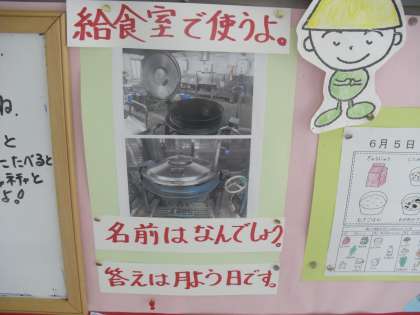 給食室で使うよ。
名前はなんでしょう。
答えは月よう日です。
ね.
と
たべると
よ!
6月5日